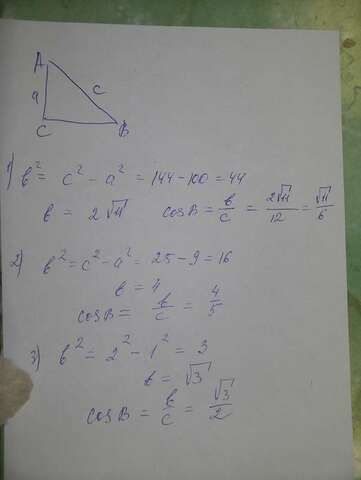 A
a c
C B
1) в² = c² - a² = 144 - 100 = 44
в = 2√11 cosB = в/c = 2√11/12 = √11/6
2) в² = c² - a² = 25 - 9 = 16
в = 4
cosB = в/c = 4/5
3) в² = 2² - 1² = 3
в = √3
cosB = в/c = √3/2